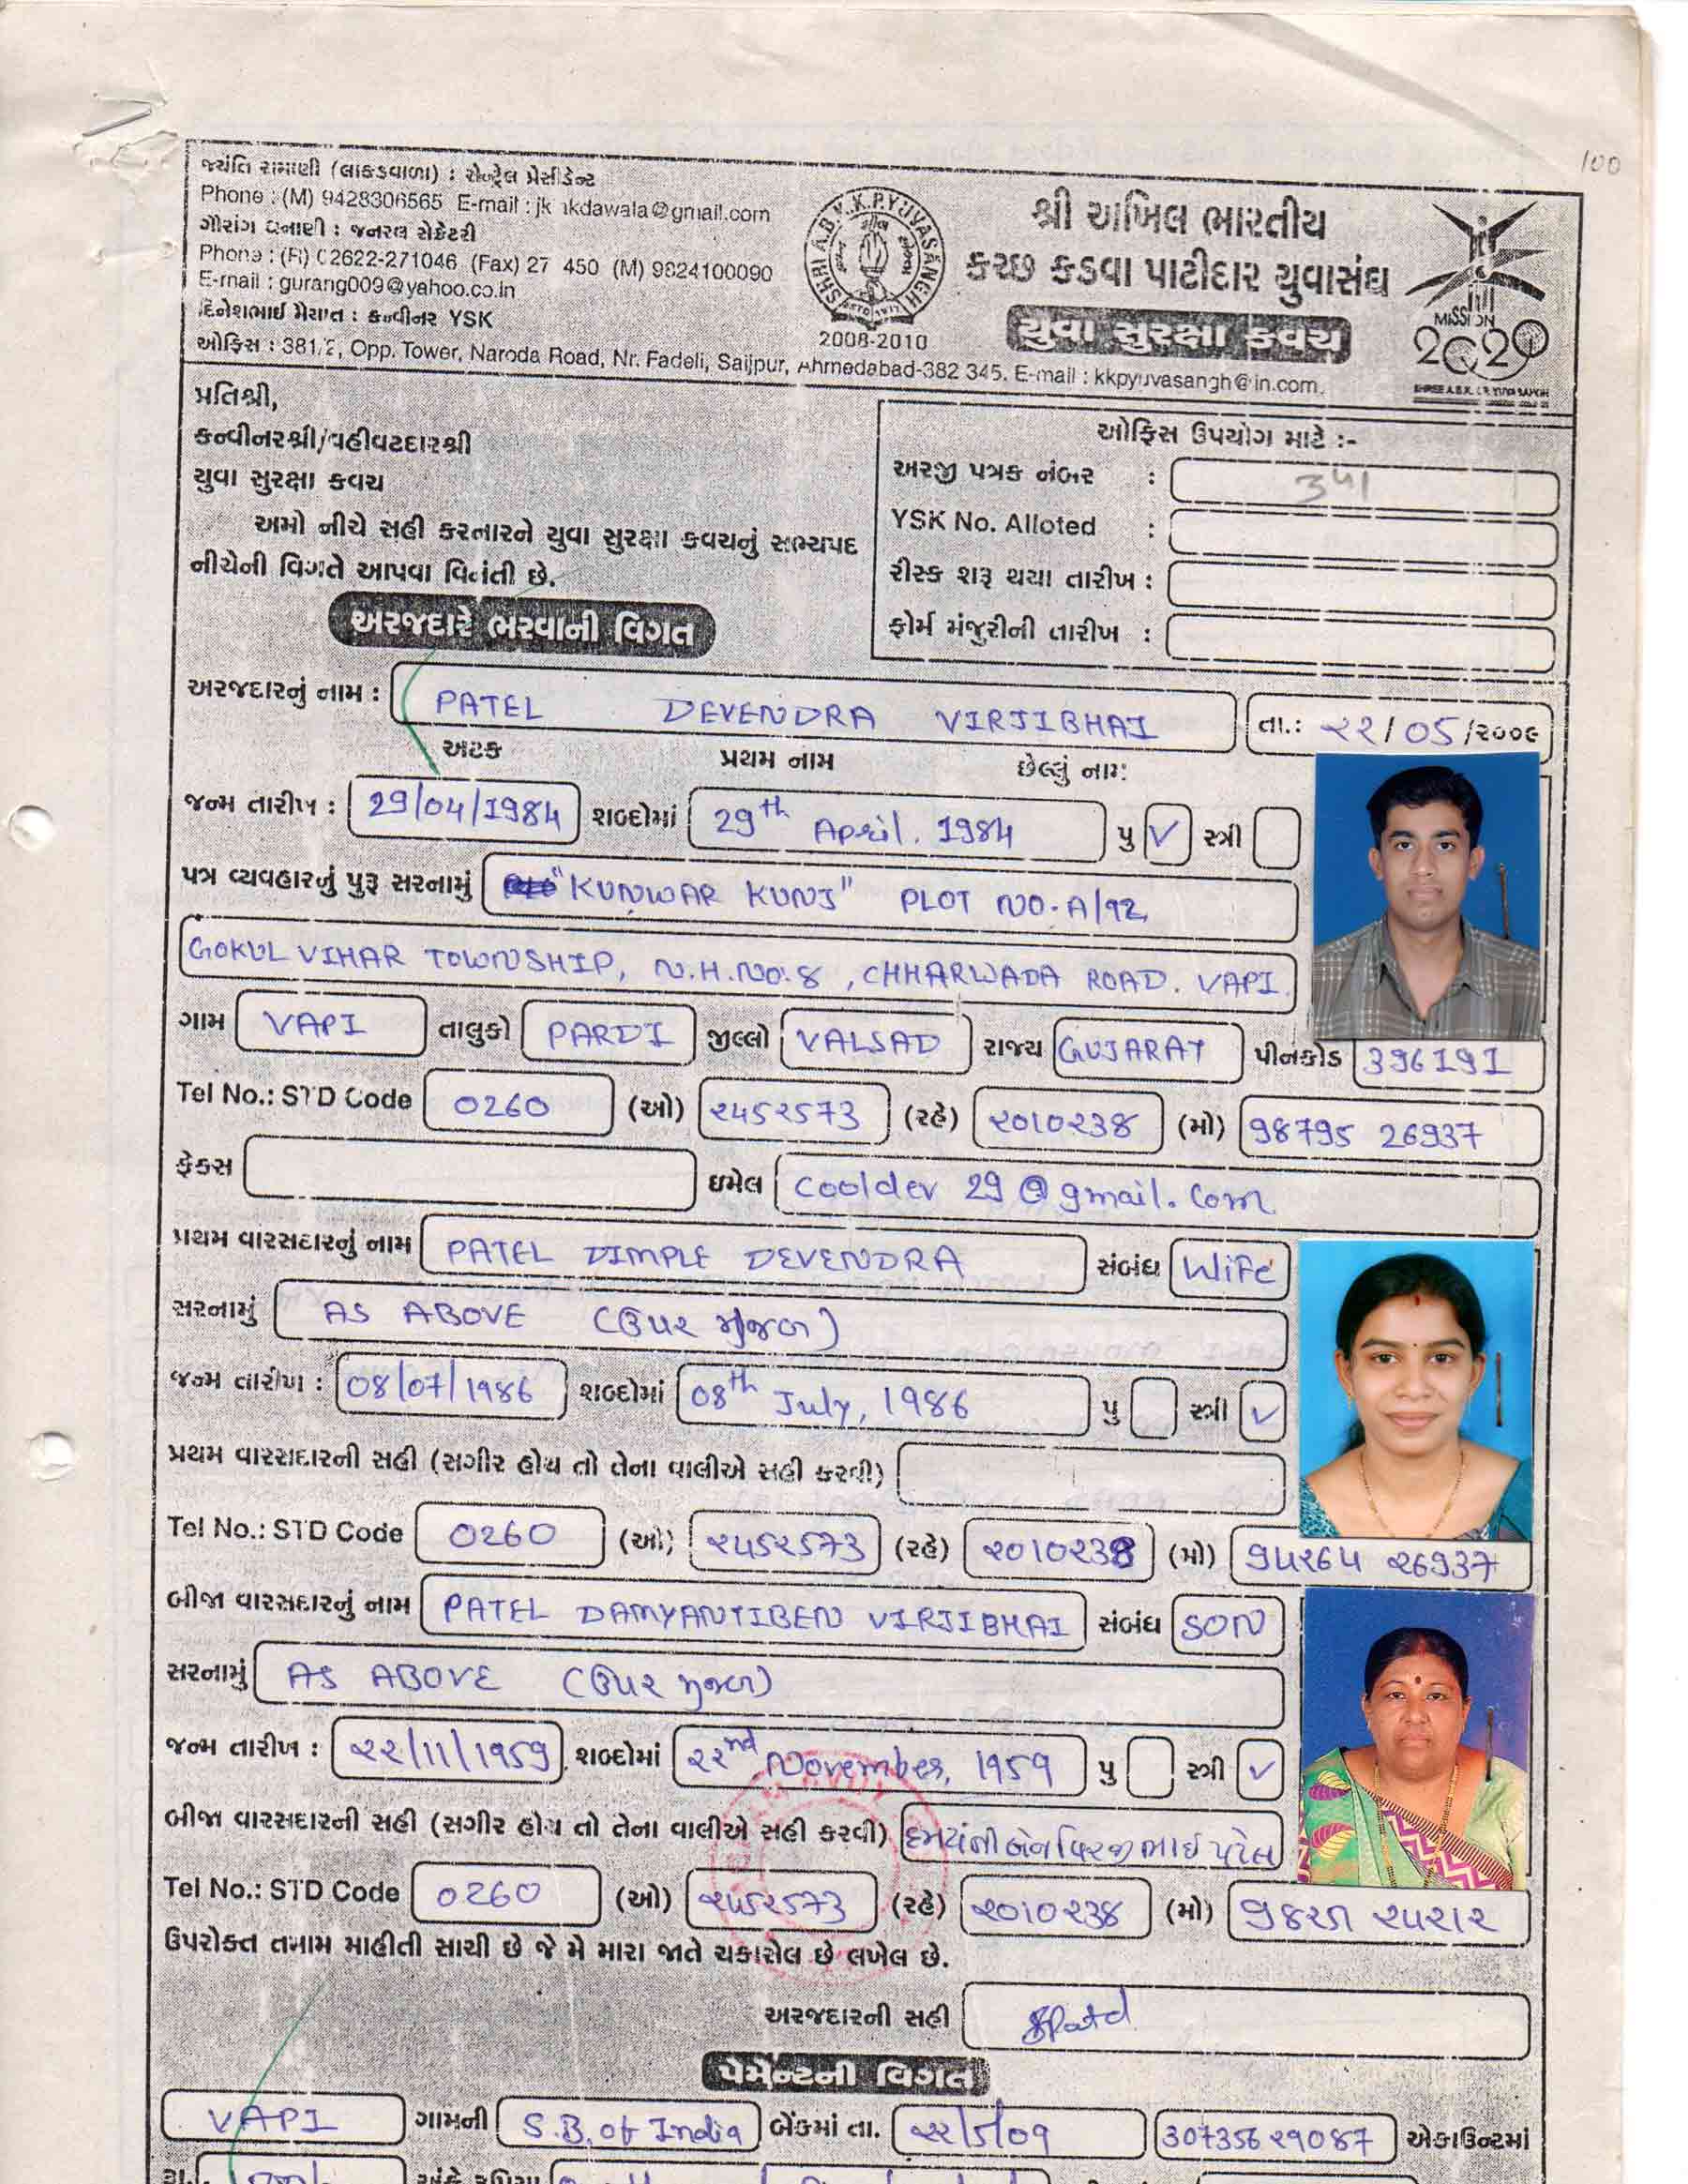 100
જયંતિ રામાણી (લાકડવાળા) : સેન્ટ્રલ પ્રેસીડેન્ટ
Phone : (M) 9428306565 E-mail : jk akdawala@gmail.com
ગૌરાંગ ધનાણી : જનરલ સેક્રેટરી
Phone : (F) 02622-271046 (Fax) 27 450 (M) 9824100090
E-mail : gurang009@yahoo.co.in
દિનેશભાઈ : કન્વીનર YSK
ઓફિસ : 381/2, Opp. Tower, Naroda Road, Nr. Fadeli, Saijpur, Ahmedabad-382 345. E-mail : kkpyuvasangh@in.com.
SHRI A.B.K.K.P. YUVASANGH
2008-2010
શ્રી અખિલ ભારતીય
કચ્છ કડવા પાટીદાર યુવાસંઘ
યુવા સુરક્ષા કવચ
MISSION
2020
પ્રતિશ્રી,
કન્વીનરશ્રી/વહીવટદારશ્રી
યુવા સુરક્ષા કવચ
અમો નીચે સહી કરનારને યુવા સુરક્ષા કવચનું સભ્યપદ
નીચેની વિગતે આપવા વિનંતી છે.
ઓફિસ ઉપયોગ માટે :-
અરજી પત્રક નંબર : ૩૫૧
YSK No. Alloted :
રીસ્ક શરૂ થયા તારીખ :
ફોર્મ મંજુરીની તારીખ :
અરજદારે ભરવાની વિગત
અરજદારનું નામ : PATEL DEVENDRA VIRJIBHAI તા.: ૨૨/05/૨૦૦૯
અટક પ્રથમ નામ છેલ્લું નામ
જન્મ તારીખ : 29/04/1984 શબ્દોમાં 29th April. 1984 પુ ✓ સ્ત્રી
પત્ર વ્યવહારનું પુરૂ સરનામું "KUNWAR KUNJ" PLOT NO. A/92,
GOKUL VIHAR TOWNSHIP, N.H.NO.8, CHHARWADA ROAD. VAPI.
ગામ VAPI તાલુકો PARDI જીલ્લો VALSAD રાજ્ય GUJARAT પીનકોડ 396191
Tel No.: STD Code 0260 (ઓ) ૨૫5૨573 (રહે) ૨010૨38 (મો) 98795 26937
ફેક્સ ઇમેલ cooldev 29 @gmail.com
પ્રથમ વારસદારનું નામ PATEL DIMPLE DEVENDRA સંબંધ Wife
સરનામું AS ABOVE (ઉપર મુજબ)
જન્મ તારીખ : 08/07/1986 શબ્દોમાં 08th July, 1986 પુ સ્ત્રી ✓
પ્રથમ વારસદારની સહી (સગીર હોય તો તેના વાલીએ સહી કરવી)
Tel No.: STD Code 0260 (ઓ) ૨૫5૨573 (રહે) ૨010૨38 (મો) 9૫૨6૫ ૨6937
બીજા વારસદારનું નામ PATEL DAMYANTIBEN VIRJIBHAI સંબંધ SON
સરનામું AS ABOVE (ઉપર મુજબ)
જન્મ તારીખ : ૨૨/11/1959 શબ્દોમાં ૨૨nd November, 1959 પુ સ્ત્રી ✓
બીજા વારસદારની સહી (સગીર હોય તો તેના વાલીએ સહી કરવી) દમયંતીબેન વિરજીભાઈ પટેલ
Tel No.: STD Code 0260 (ઓ) ૨૫5૨573 (રહે) ૨010૨38 (મો)
ઉપરોક્ત તમામ માહીતી સાચી છે જે મે મારા જાતે ચકાસેલ છે લખેલ છે.
અરજદારની સહી
પેમેન્ટની વિગત
VAPI ગામની S.B. of India બેંકમાં તા. ૨૨/5/09 30735629087 એકાઉન્ટમાં